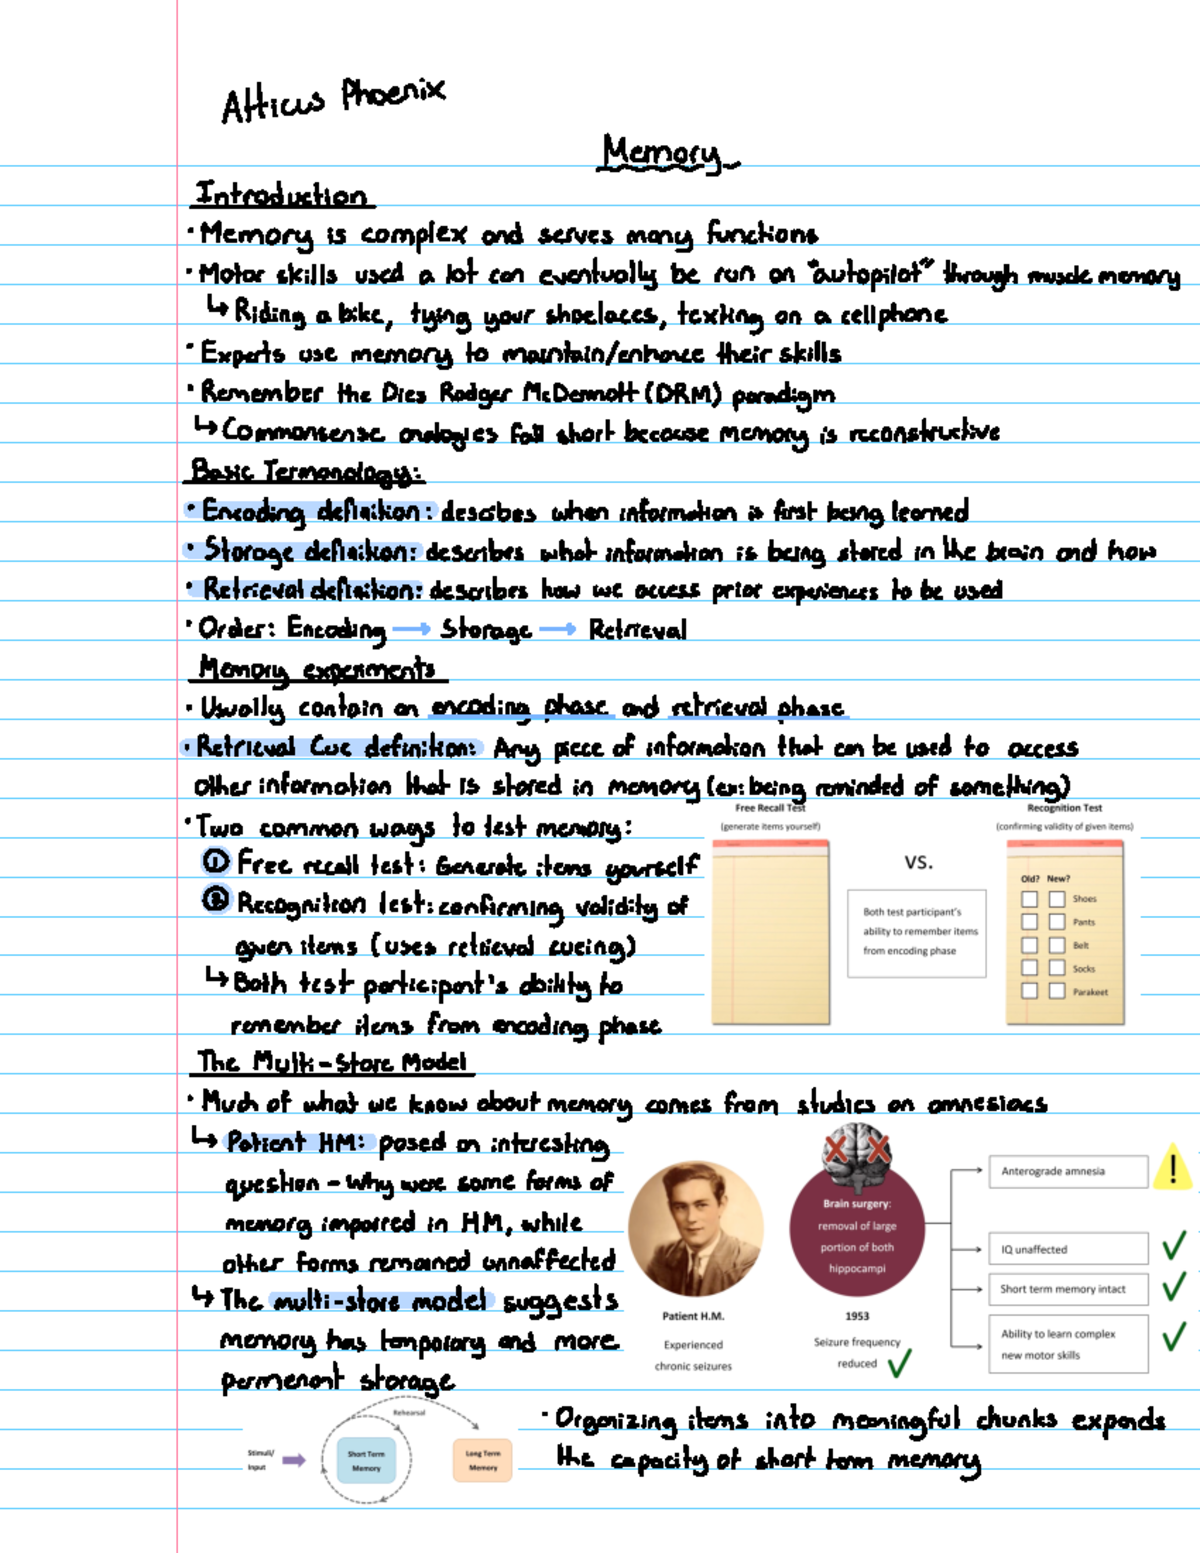 Atticus Phoenix
Memory
Introduction
· Memory is complex and serves many functions
· Motor skills used a lot can eventually be run on "autopilot" through muscle memory
↳ Riding a bike, tying your shoelaces, texting on a cellphone
· Experts use memory to maintain/enhance their skills
· Remember the Dies Rodger McDermott (DRM) paradigm
↳ Commonsense analogies fall short because memory is reconstructive
Basic Termonology:
· Encoding definition: descibes when information is first being learned
· Storage definition: describes what information is being stored in the brain and how
· Retrieval definition: describes how we access prior experiences to be used
· Order: Encoding → Storage → Retrieval
Memory experiments
· Usually contain an encoding phase and retrieval phase
· Retrieval Cue definition: Any piece of information that can be used to access
other information that is stored in memory (ex: being reminded of something)
· Two common ways to test memory:
① Free recall test: Generate items yourself
② Recognition test: confirming validity of
given items (uses retrieval cueing)
↳ Both test participant's ability to
remember items from encoding phase
Free Recall Test
(generate items yourself)
VS.
Both test participant's
ability to remember items
from encoding phase
Recognition Test
(confirming validity of given items)
Old? New?
Shoes
Pants
Belt
Socks
Parakeet
The Multi-Store Model
· Much of what we know about memory comes from studies on amnesiacs
↳ Patient HM: posed an interesting
question - why were some forms of
memory impaired in HM, while
other forms remained unnaffected
↳ The multi-store model suggests
memory has temporary and more
permenant storage
Patient H.M.
Experienced
chronic seizures
Brain surgery:
removal of large
portion of both
hippocampi
1953
Seizure frequency
reduced
Anterograde amnesia
!
IQ unaffected
Short term memory intact
Ability to learn complex
new motor skills
Rehearsal
Stimuli/
Input
Short Term
Memory
Long Term
Memory
· Organizing items into meaningful chunks expands
the capacity of short term memory